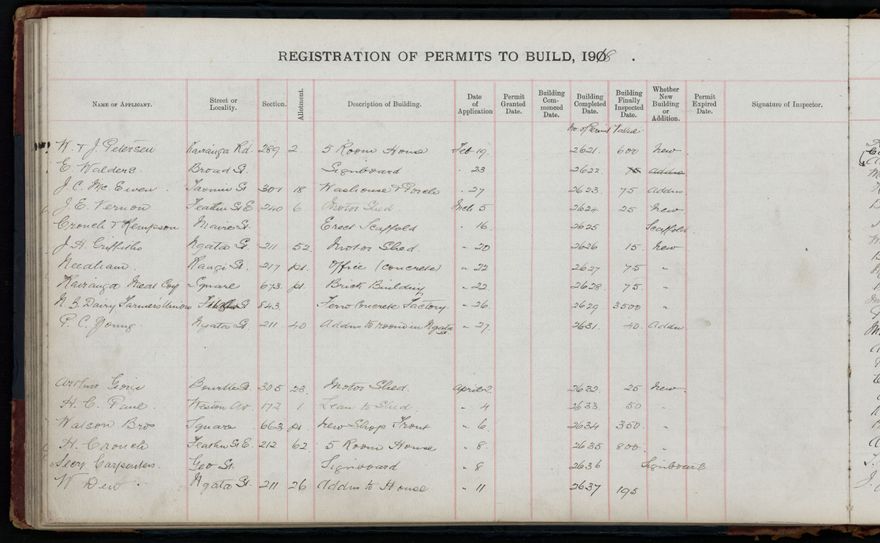 REGISTRATION OF PERMITS TO BUILD, 1918.
NAME OF APPLICANT. Street or Locality. Section. Allotment. Description of Building. Date of Application Permit Granted Date. Building Commenced Date. Building Completed Date. Building Finally Inspected Date. Whether New Building or Addition. Permit Expired Date. Signature of Inspector.
No. of Permit Value
W. & J. Petersen Kairanga Rd. 289 2 5 Room House Feb 19 2621 600 New
E. Walders Broad St. Signboard " 23 2622
J. C. McEwen 301 18 Washouse & Porch " 27 2623 75 Addn
J. E. Vernon Feather St E. 240 6 Motor Shed Mch 5 2624 25 New
Crouch & Hempson Maire St. Erect Scaffold " 16 2625 Scaffold
J. H. Griffiths Ngata St. 211 52 Motor Shed " 20 2626 15 New
Needham Rangi St. 217 pt. Office (concrete) " 22 2627 75 "
Kairanga Meat Coy Square 673 pt. Brick Building " 22 2628 75 "
N. Z. Dairy Farmers Union St 843 Ferro Concrete Factory " 26 2629 3500 "
P. C. Young Ngata St. 211 40 Addns to room in Ngata St " 27 2631 40 Addn
Arthur Bourke St 305 23 Motor Shed April 2 2632 25 New
H. C. Paul Weston Av. 172 1 Lean to Shed " 4 2633 50 "
Watson Bros Square 663 pt. New Shop Front " 6 2634 350 "
H. Crouch Feather St E. 212 62 5 Room House " 8 2635 800 "
Secy Carpenters Geo St. Signboard " 8 2636 Signboard
W Dew Ngata St. 211 26 Addns to House " 11 2637 195